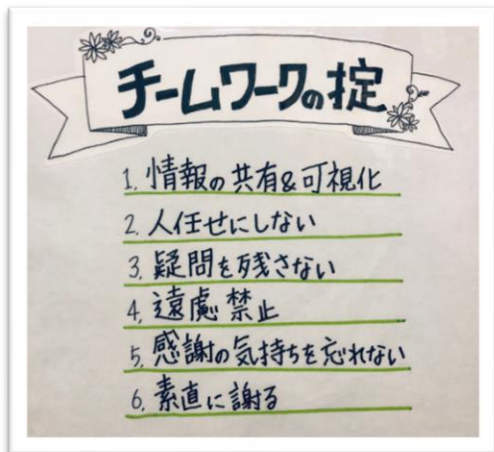 チームワークの掟
1. 情報の共有&可視化
2. 人任せにしない
3. 疑問を残さない
4. 遠慮禁止
5. 感謝の気持ちを忘れない
6. 素直に謝る